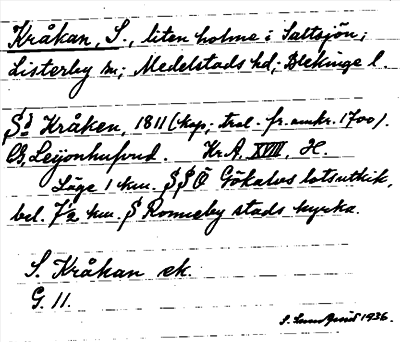 Kråkan, S., liten holme i Saltsjön;
Listerby sn; Medelstads hd; Blekinge l.
Kråken, 1811 (kop. fr. omkr. 1700).
Leijonhufvud. Kr. A. XVIII, H.
Läge 1 km. Gökalvs lotsutkik,
bel. 7½ km. Ronneby stads kyrka.
S. Kråkan ek.
G. 11.
S. Lundqvist 1936.